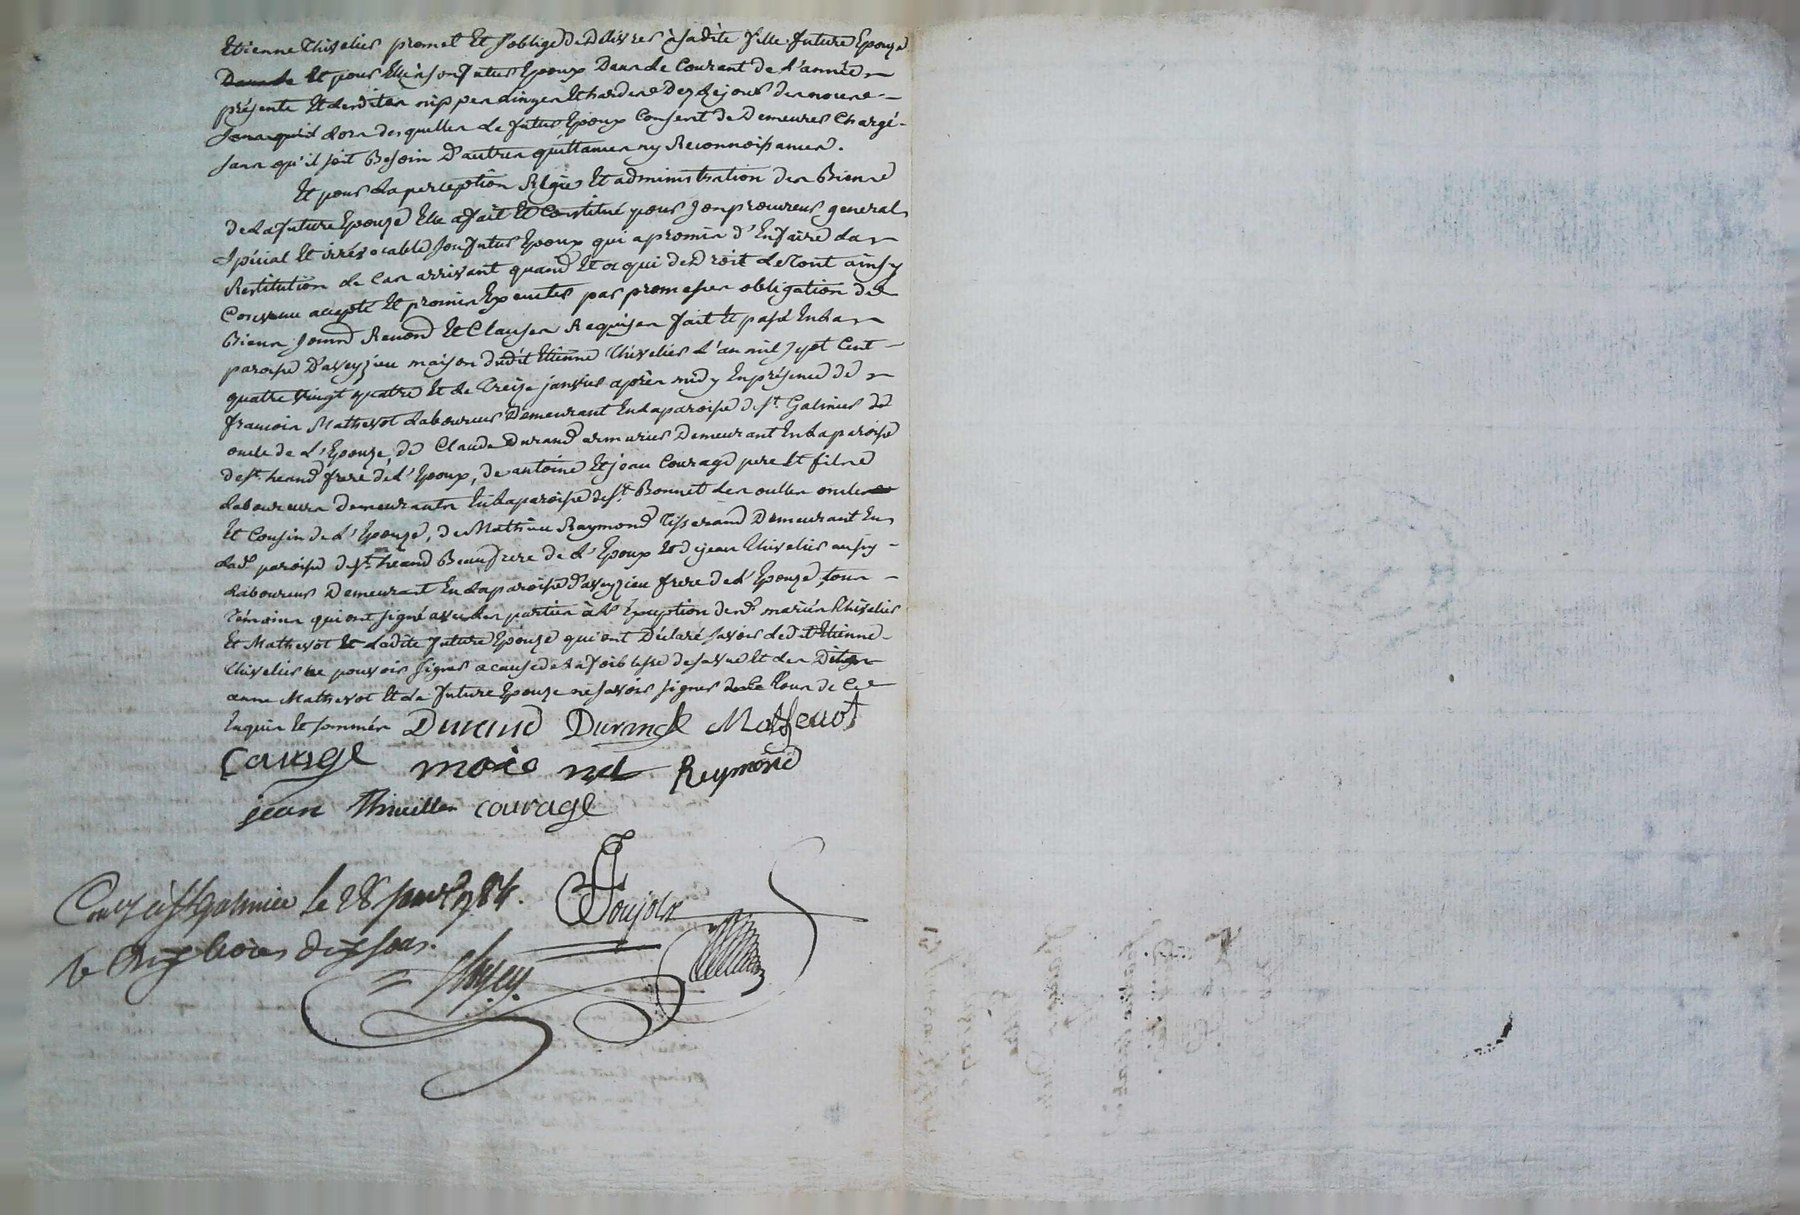 Etienne Thivelier promet Et s'oblige De Delivrer à sadite fille future Epouze
Et pour Elle à son futur Epoux Dans le Courant de L'année
présente Et lesdites nippes linges Et hardes Dez le jour des noces
lors desquelles le futur Epoux Consent de Demeurer Chargé
sans qu'il soit Besoin D'autres quittances ny Reconnoissances.
Et pour La perception Régie Et administration des Biens
de La future Epouze Elle a fait Et Constitué pour son procureur general
spécial Et irrévocable son futur Epoux qui a promis d'En faire La
Restitution le Cas arrivant quand Et a qui de Droit Le Tout ainsy
Convenu accepté Et promis Executer par promesses obligation de
Biens soumd Renond Et Clauses Requises fait Et passé En La
paroisse D'aveyzieu maison dudit Etienne Thivelier L'an mil sept Cent
quatre vingt quatre Et le Treize janvier après midy En présence de
françois Mathevot Laboureur Demeurant En La paroisse de St. Galmier
oncle de L'Epouze, de Claude Durand armurier Demeurant En La paroisse
de st. heand frere de L'Epoux, de antoine Et jean Courage pere Et fils
Laboureurs demeurants En La paroisse de St Bonnet Les oulles oncle
Et Cousin de L'Epouze, de Mathieu Raymond Tisserand Demeurant En
Lad. paroisse de St. heand Beaufrere de L'Epoux Et de jean Thivelier aussy
Laboureur Demeurant En La paroisse D'aveyzieu frere de L'Epouze, tous
Témoins qui ont signé avec Les parties à L'Exception desd. mariés Thivelier
Et Mathevot Et Ladite future Epouze qui ont Déclaré savoir Ledit Etienne
Thivelier ne pouvoir signer a cause de La foiblesse de sa vue Et Les Dites
anne Mathevot Et La future Epouze ne savoir signer de ce Tous de Ce
Enquis Et sommés Durand Durand Mathevot
Courage Reymond
jean Thivillier courage
Conlé à St galmier le 28 janv. 1784. Goujon
R Cinq livres dix sous.